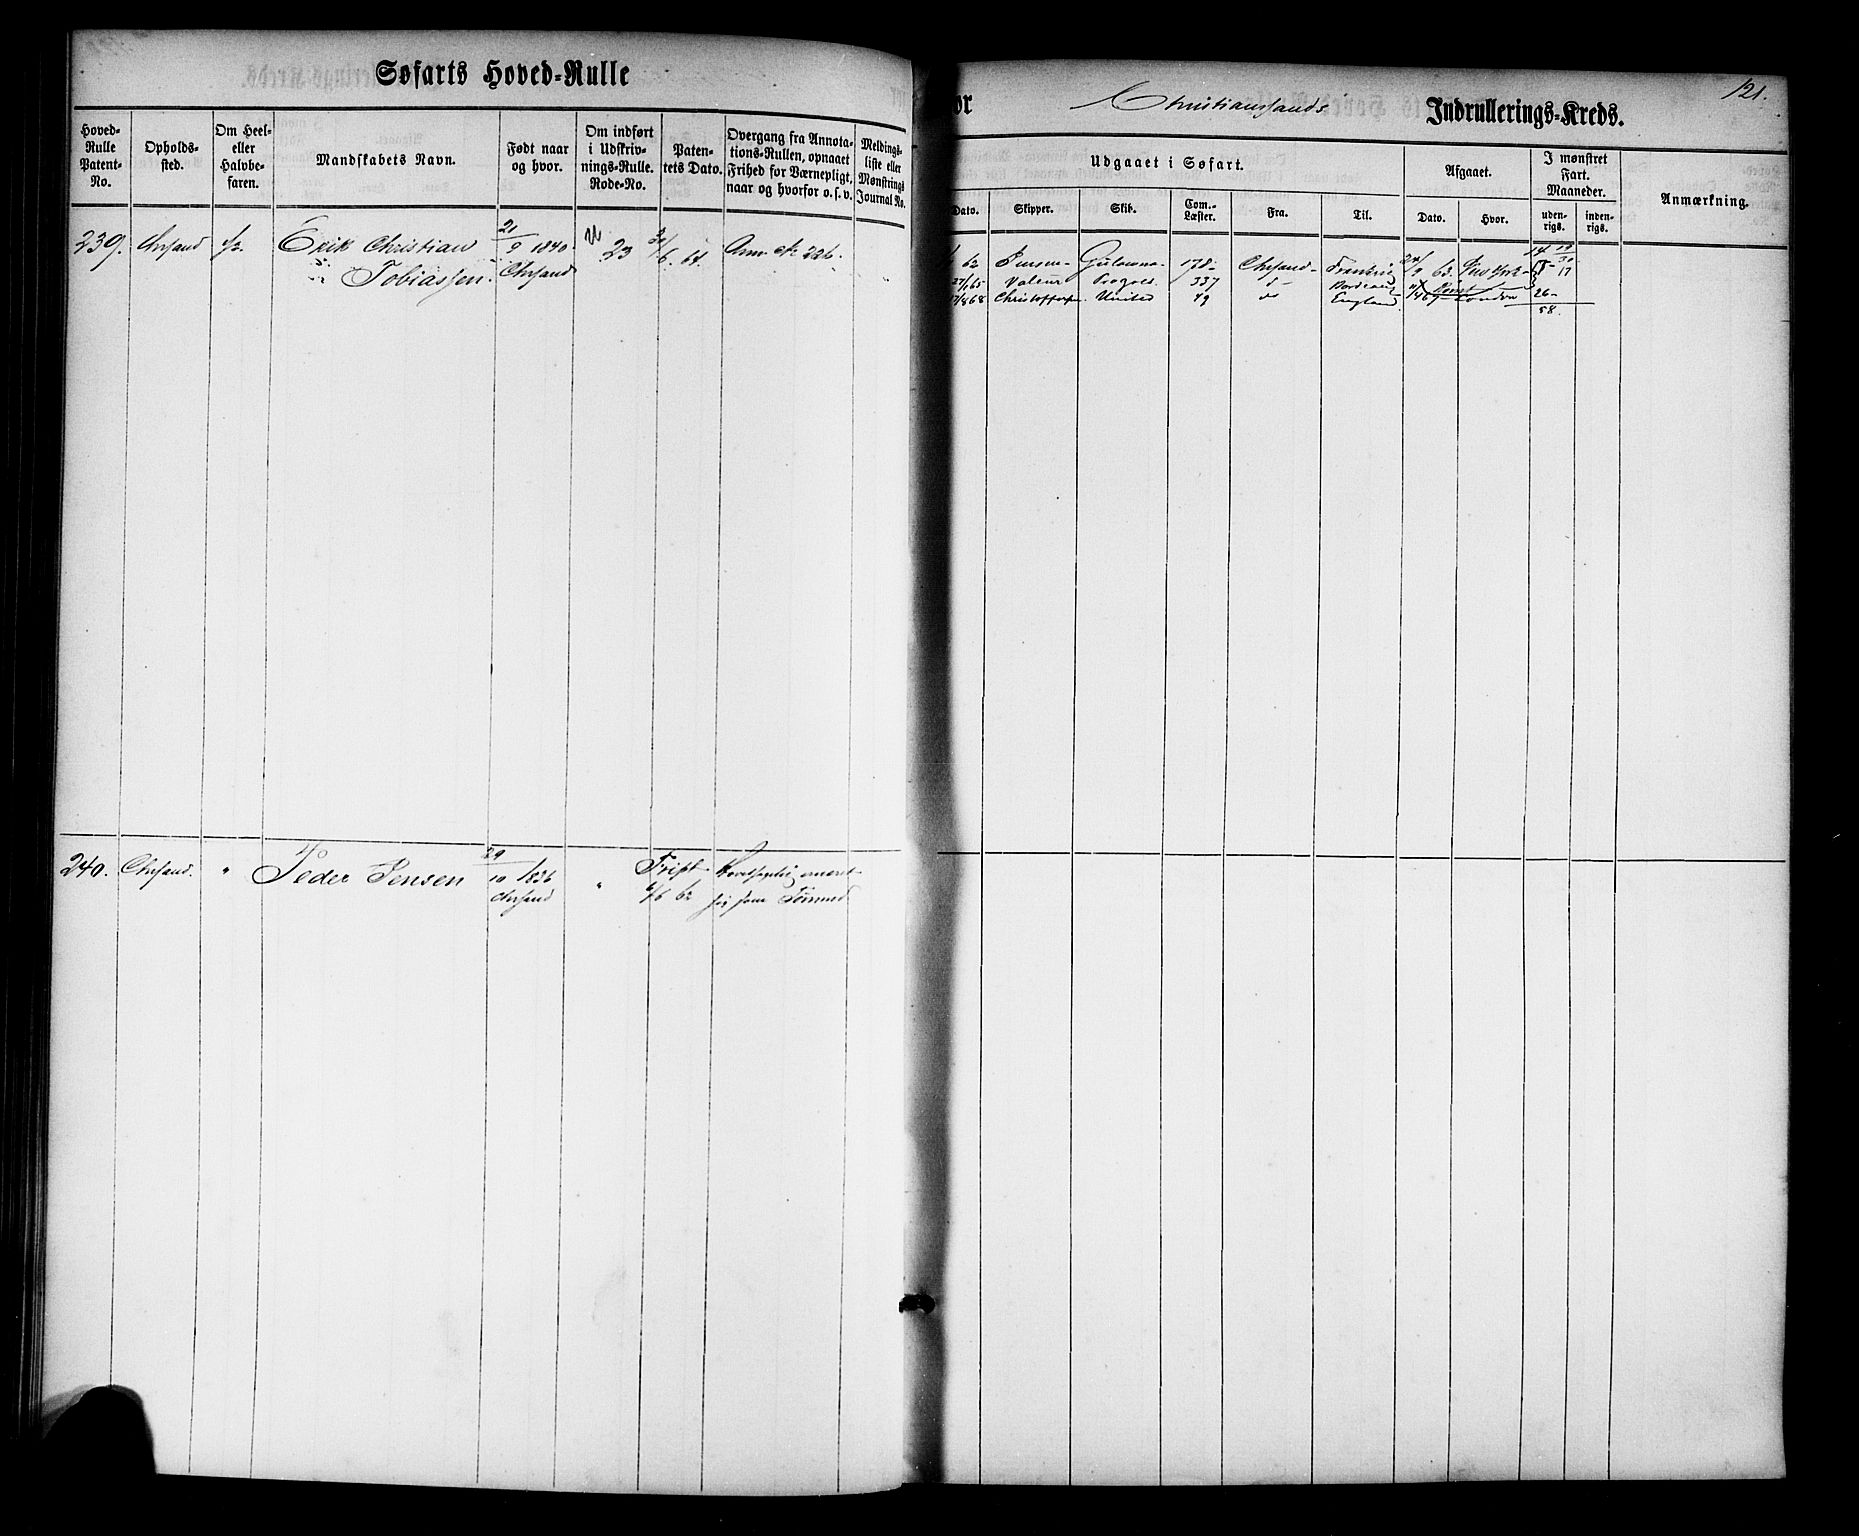 Søfarts Hoved-Rulle
for Christianssands Indrullerings-Kreds.
121.
Hoved-Rulle Patent-No.
Opholds-sted.
Om Heel- eller Halvbe-faren.
Mandskabets Navn.
Født naar og hvor.
Om indført i Udskriv-nings-Rulle. Rode-No.
Paten-tets Dato.
Overgang fra Annota-tions-Rullen, opnaaet Frihed for Værnepligt, naar og hvorfor o. s. v.
Meldings-liste eller Mønstrings Journal No.
Udgaaet i Søfart.
Dato.
Skipper.
Skib.
Com.-Læster.
Fra.
Til.
Afgaaet.
Dato.
Hvor.
I mønstret Fart. Maaneder.
uden-rigs.
inden-rigs.
Anmærkning.
239. Chrsand 1/2 Erik Christian Tobiassen. 21/9 1840 Chrsand 23 30/6 64. Ann 226.
62 Jensen 178 Chrsand Frankrig 24/9 63 New York
27/1 65 Valeur 337 d Bordeaux
868 Christoffersen United 49 do England London 26
58.
240. Chrsand. " Peder Jensen 29/10 1836 Chrsand " Frist 6/6 62 sig som